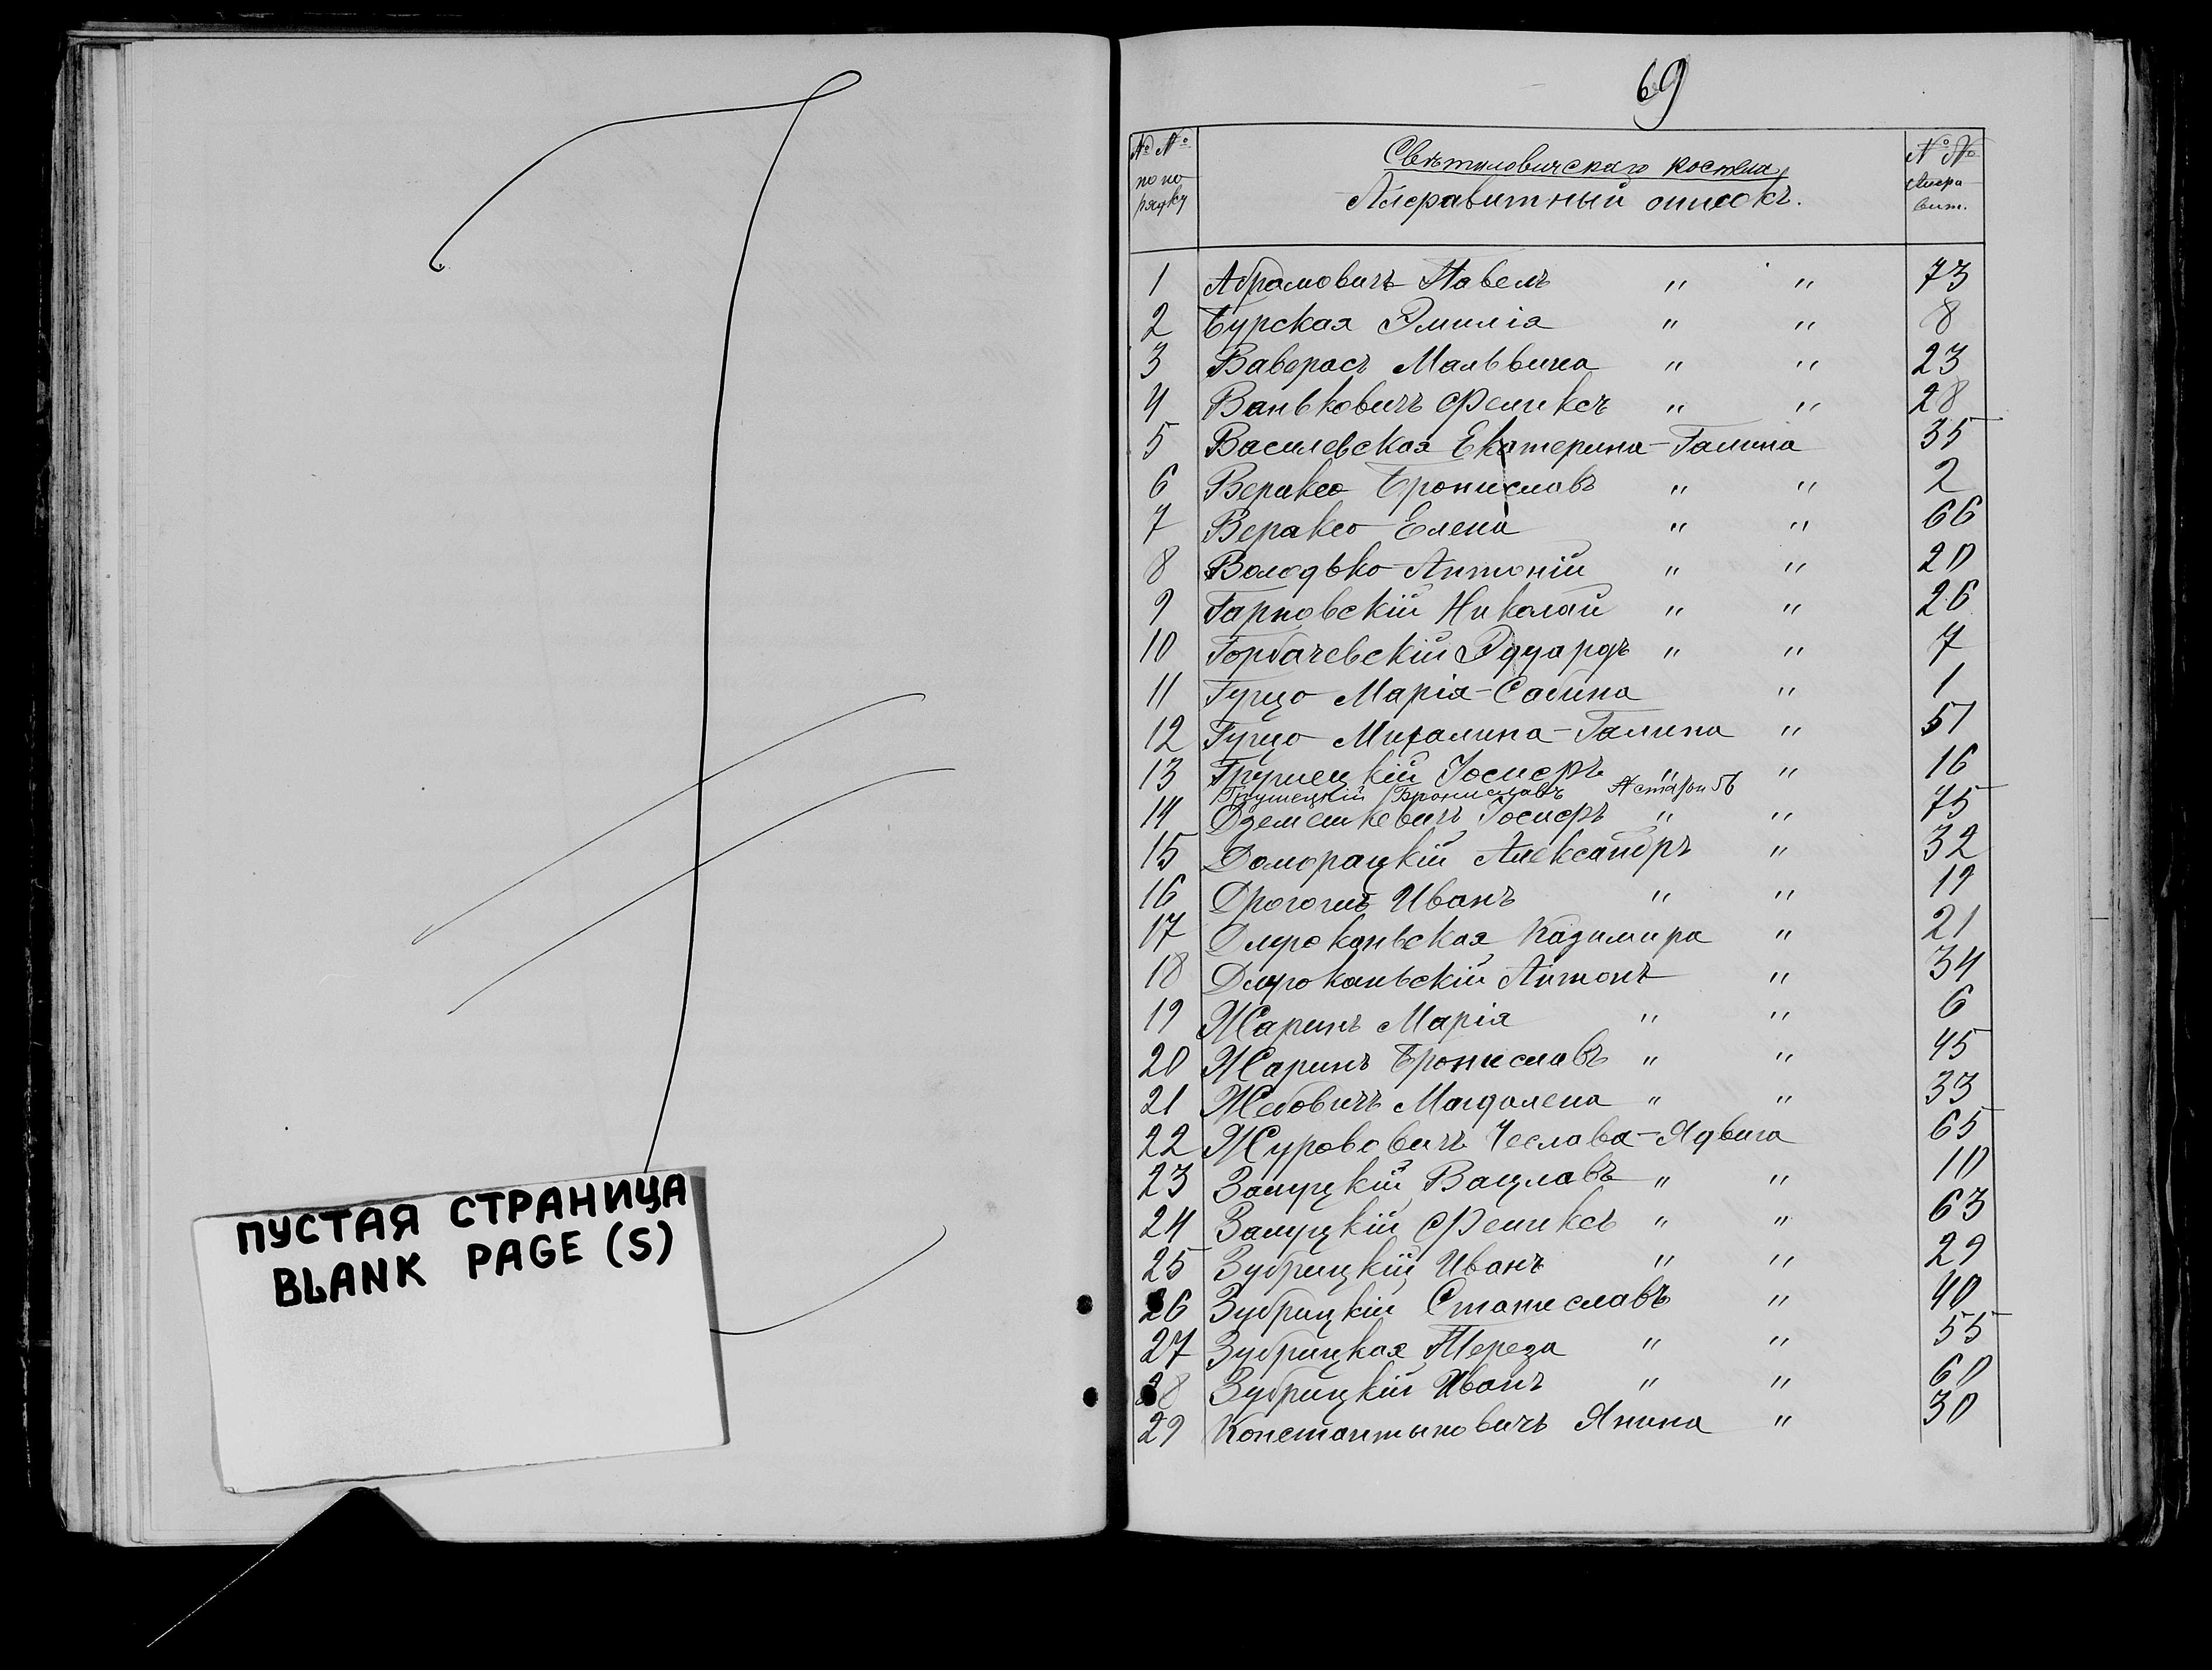 ПУСТАЯ СТРАНИЦА
BLANK PAGE (S)
69
№ №
по по
рядку
Свѣтиловичскаго костела,
Алфавитный списокъ.
№ №
Алфа
вит.
1 Абрамовичъ Павелъ " " 73
2 Бурская Эмилія " " 8
3 Ваверасъ Мальвина " " 23
4 Ваньковичъ Феликсъ " " 28
5 Василевская Екатерина-Галина 35
6 Веракса Брониславъ " " 2
7 Веракса Елена " " 66
8 Володько Антоній " " 20
9 Гарновскій Николай " " 26
10 Горбачевскій Эдуардъ " " 7
11 Гурцо Марія-Сабина " 1
12 Гурцо Михалина-Галина " 51
13 Грушецкій Іосифъ " " 16
Грушецкій Брониславъ
14 Дземешкевичъ Іосифъ " " 75
15 Доморацкій Александръ " 32
16 Иванъ " " 19
17 Казимира " 21
18 Антонъ " 34
19 Жаринъ Марія " " 6
20 Жаринъ Брониславъ " " 45
21 Жебовичъ Магдалена " " 33
22 Журововичъ Чеслава-Ядвига 65
23 Залуцкій Вацлавъ " " 10
24 Залуцкій Феликсъ " " 63
25 Зубрицкій Иванъ " " 29
26 Зубрицкій Станиславъ " 40
27 Зубрицкая Тереза " " 55
28 Зубрицкій Иванъ " " 60
29 Константыновичъ Янина " 30